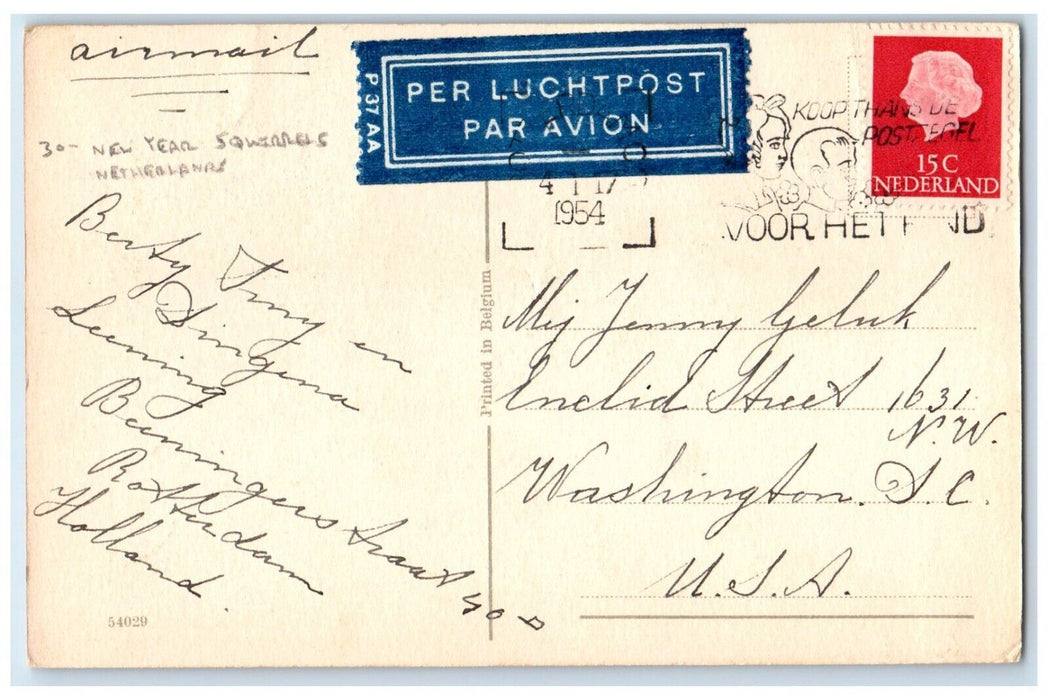 airmail
P 37 AA
PER LUCHTPOST
PAR AVION
15 C
NEDERLAND
KOOP THANS DE
POSTZEGEL
VOOR HET KIND
4 I 17
1954
30- NEW YEAR SQUIRRELS
NETHERLANDS
Berty Tiny en
Dingena
Leening
Beuningerstraat 40
Rotterdam
Holland.
54029
Printed in Belgium
Mej Jenny Geluk
Euclid Street 1631
N.W.
Washington. D.C.
U.S.A.